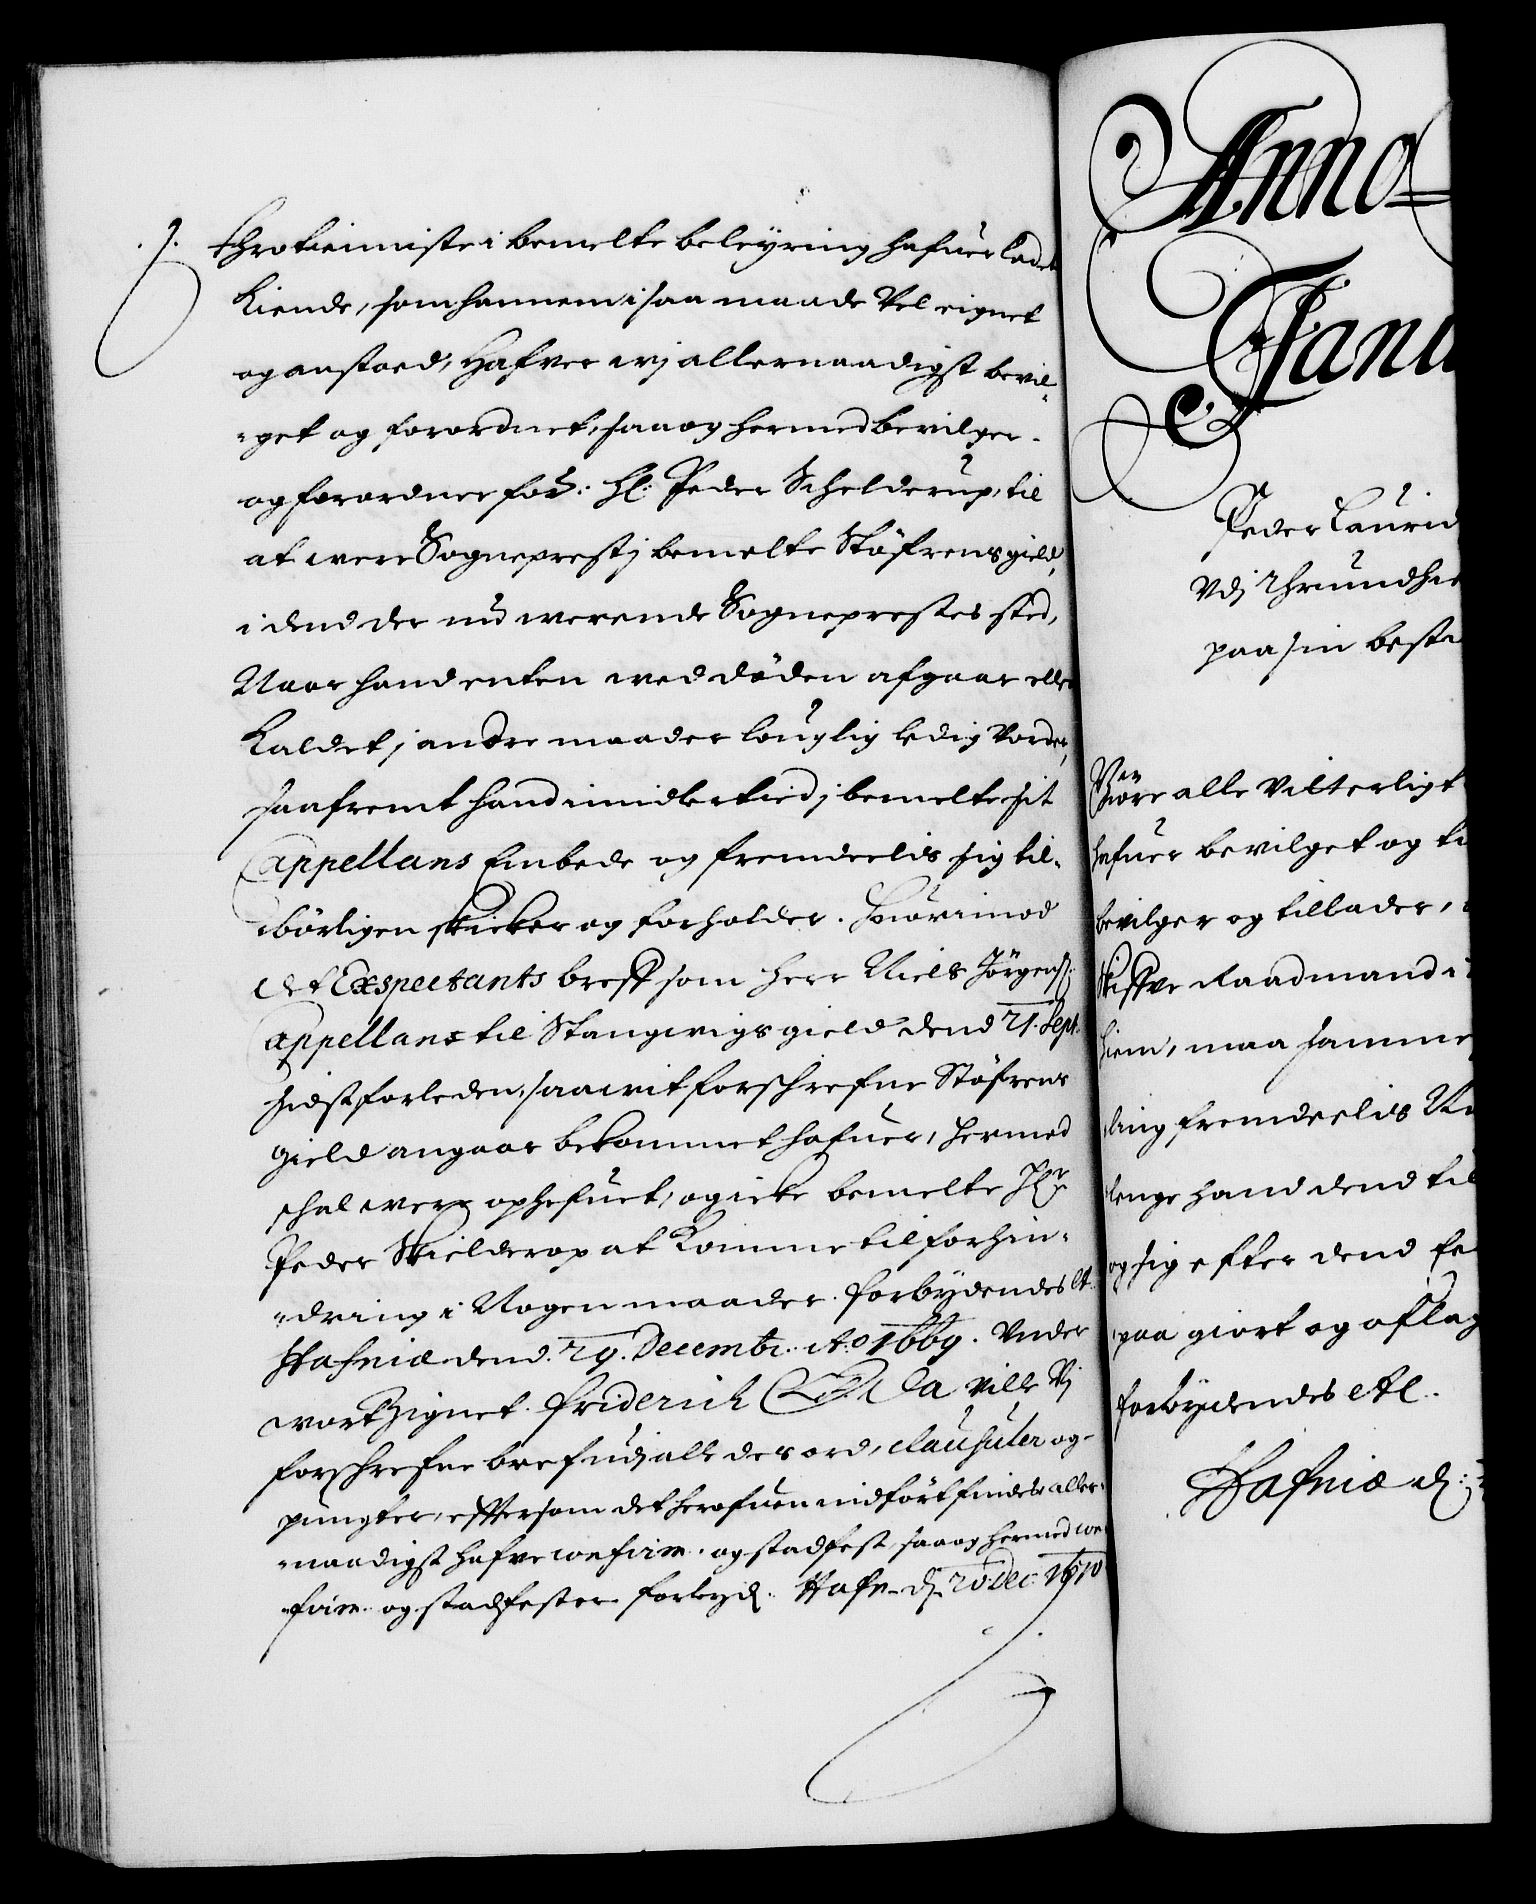 throtieniste i bemelte beleyring hafuer ladet
kiende, som hannem i saa maade vel eignet
og anstoed, Hafver wj allernaadigst bevil-
-get og forordnet, saa og hermed bevilger
og forordner for: Hl: Peder Schelderup, til
at were Sogneprest j bemelte Stöfrens gield,
i dend der nu werende Sogneprestes sted,
Naar hand enten wed döden afgaar eller
Kaldet j andre maader louglig ledig vorder,
saafremt hand imidlertied j bemelte sit
Cappellans Embede og fremdeelis sig til-
börligen skicker og forholder. Huorimod
det Exspectants breff som Herr Niels Jörgens:
Cappellan til Stangvigs gield dend 21. Sept.
sidst forleden, saawit forschrefne Stöfrens
gield angaar bekommet hafuer, hermed
schal were ophefuet, og icke bemelte Hr
Peder Skielderop at komme til forhin-
-dring i Nogen maader. Forbydendes etc.
Hafniæ dend. 29. Decemb: Ao 1669. Under
wort Zignet. Friderich Da Ville Vj
forschrefne bref udj alle des ord, clausuler og
pungter, effter som det herofuen indfört findes aller-
-naadigst hafve confirm. og stadfest, saa og hermed con-
firm. og stadfester forbyd. Hafn. d. 20 Dec: 1670
Anno
Janu
Peder Laurid
Udj Thrundhie
paa sin besta
Vj
Giöre alle Vitterligt
hafuer bevilget og ti
bevilger og tillader,
Raadmand i
hiem, maa samme
ling fremdeelis
lenge hand dend til
og sig efter dend
paa giort og
forbydendes etc.
Hafniæ d: